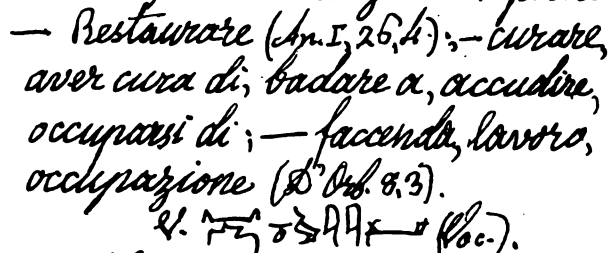 — Restaurare (An. I, 26, 4); — curare,
aver cura di, badare a, accudire,
occuparsi di; — faccenda, lavoro,
occupazione (D'Orb. 8, 3).
V. (Voc.).